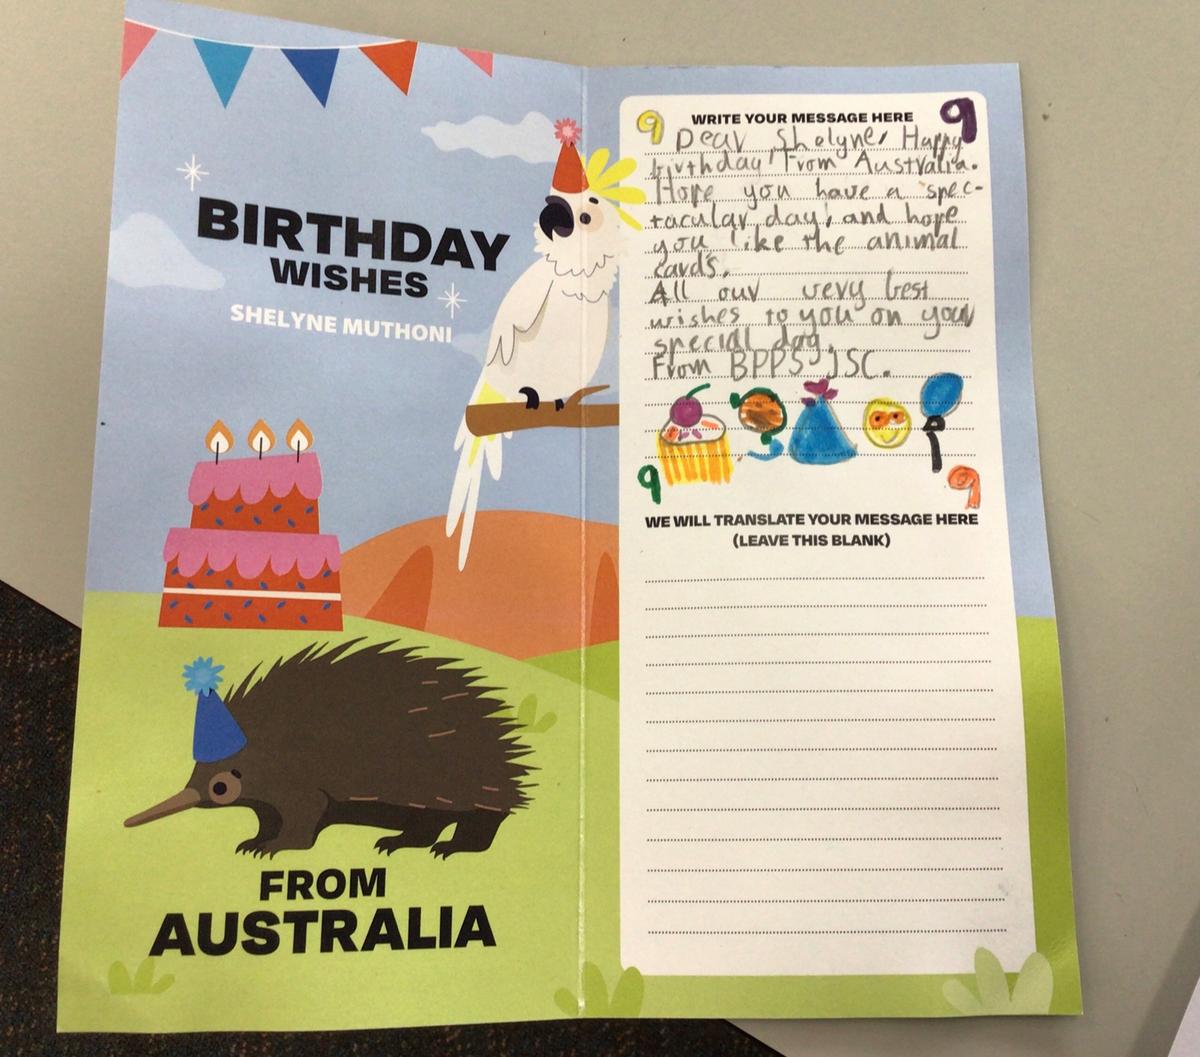 BIRTHDAY
WISHES
SHELYNE MUTHONI
FROM
AUSTRALIA
9 WRITE YOUR MESSAGE HERE 9
Dear Shelyne, Happy
birthday! From Australia.
Hope you have a spec-
tacular day, and hope
you like the animal
cards.
All our very best
wishes to you on your
special day.
From BPPS JSC.
9 9
WE WILL TRANSLATE YOUR MESSAGE HERE
(LEAVE THIS BLANK)